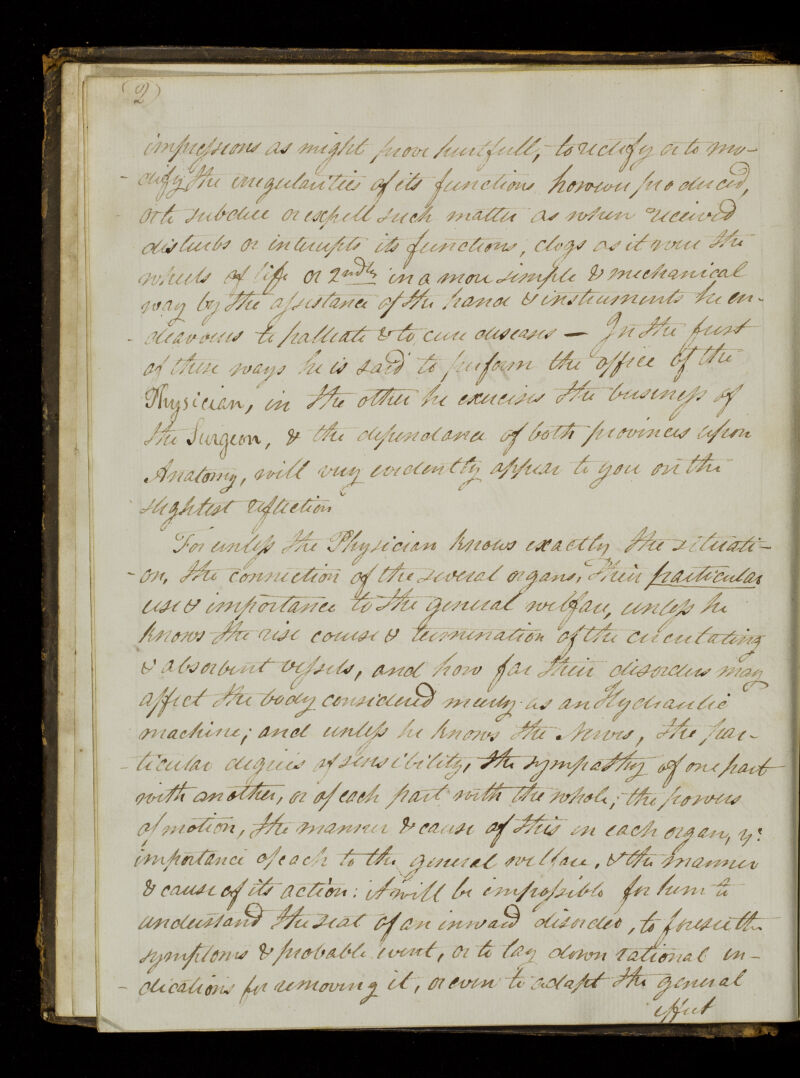 (2)
impressions as might prove hurtfull, to rectify or to mo-
-dify the irregularities of its functions however produced,
or to subdue or expell such matter as when received
disturbs or interrupts its functions, clogs as it were the
wheels of life or 2ndly in a more simple & mechanical
way by the assistance of the hand & instruments he en-
-deavours to palliate & to cure diseases — In the first
of these ways he is said to perform the office of the
Physician, in the other he exercises the business of
the Surgeon, & the dependance of both provinces upon
Anatomy, will very evidently appear to you on the
slightest reflection
For unless the Physician knows exactly the situati-
-on, the connection of the several organs, Their particular
use & importance to the general welfare, unless he
knows the rise course & termination of the circulating
& absorbent vessels, and how far their disorders may
affect the body considered merely as an Hydraulic
machine; and unless he knows the Nerves, the par-
-ticular degrees of sensibility, the sympathy of one part
with another, or of each part with the whole; the powers
of motion, the manner & cause of this in each organ, ye
importance of each to the general welfare, & the manner
& cause of its action: it will be impossible for him to
understand the seat of an inward disorder, to foresee the
symptoms & probable event, or to lay down rational in-
-dications for removing it, or even to adapt the general
effect